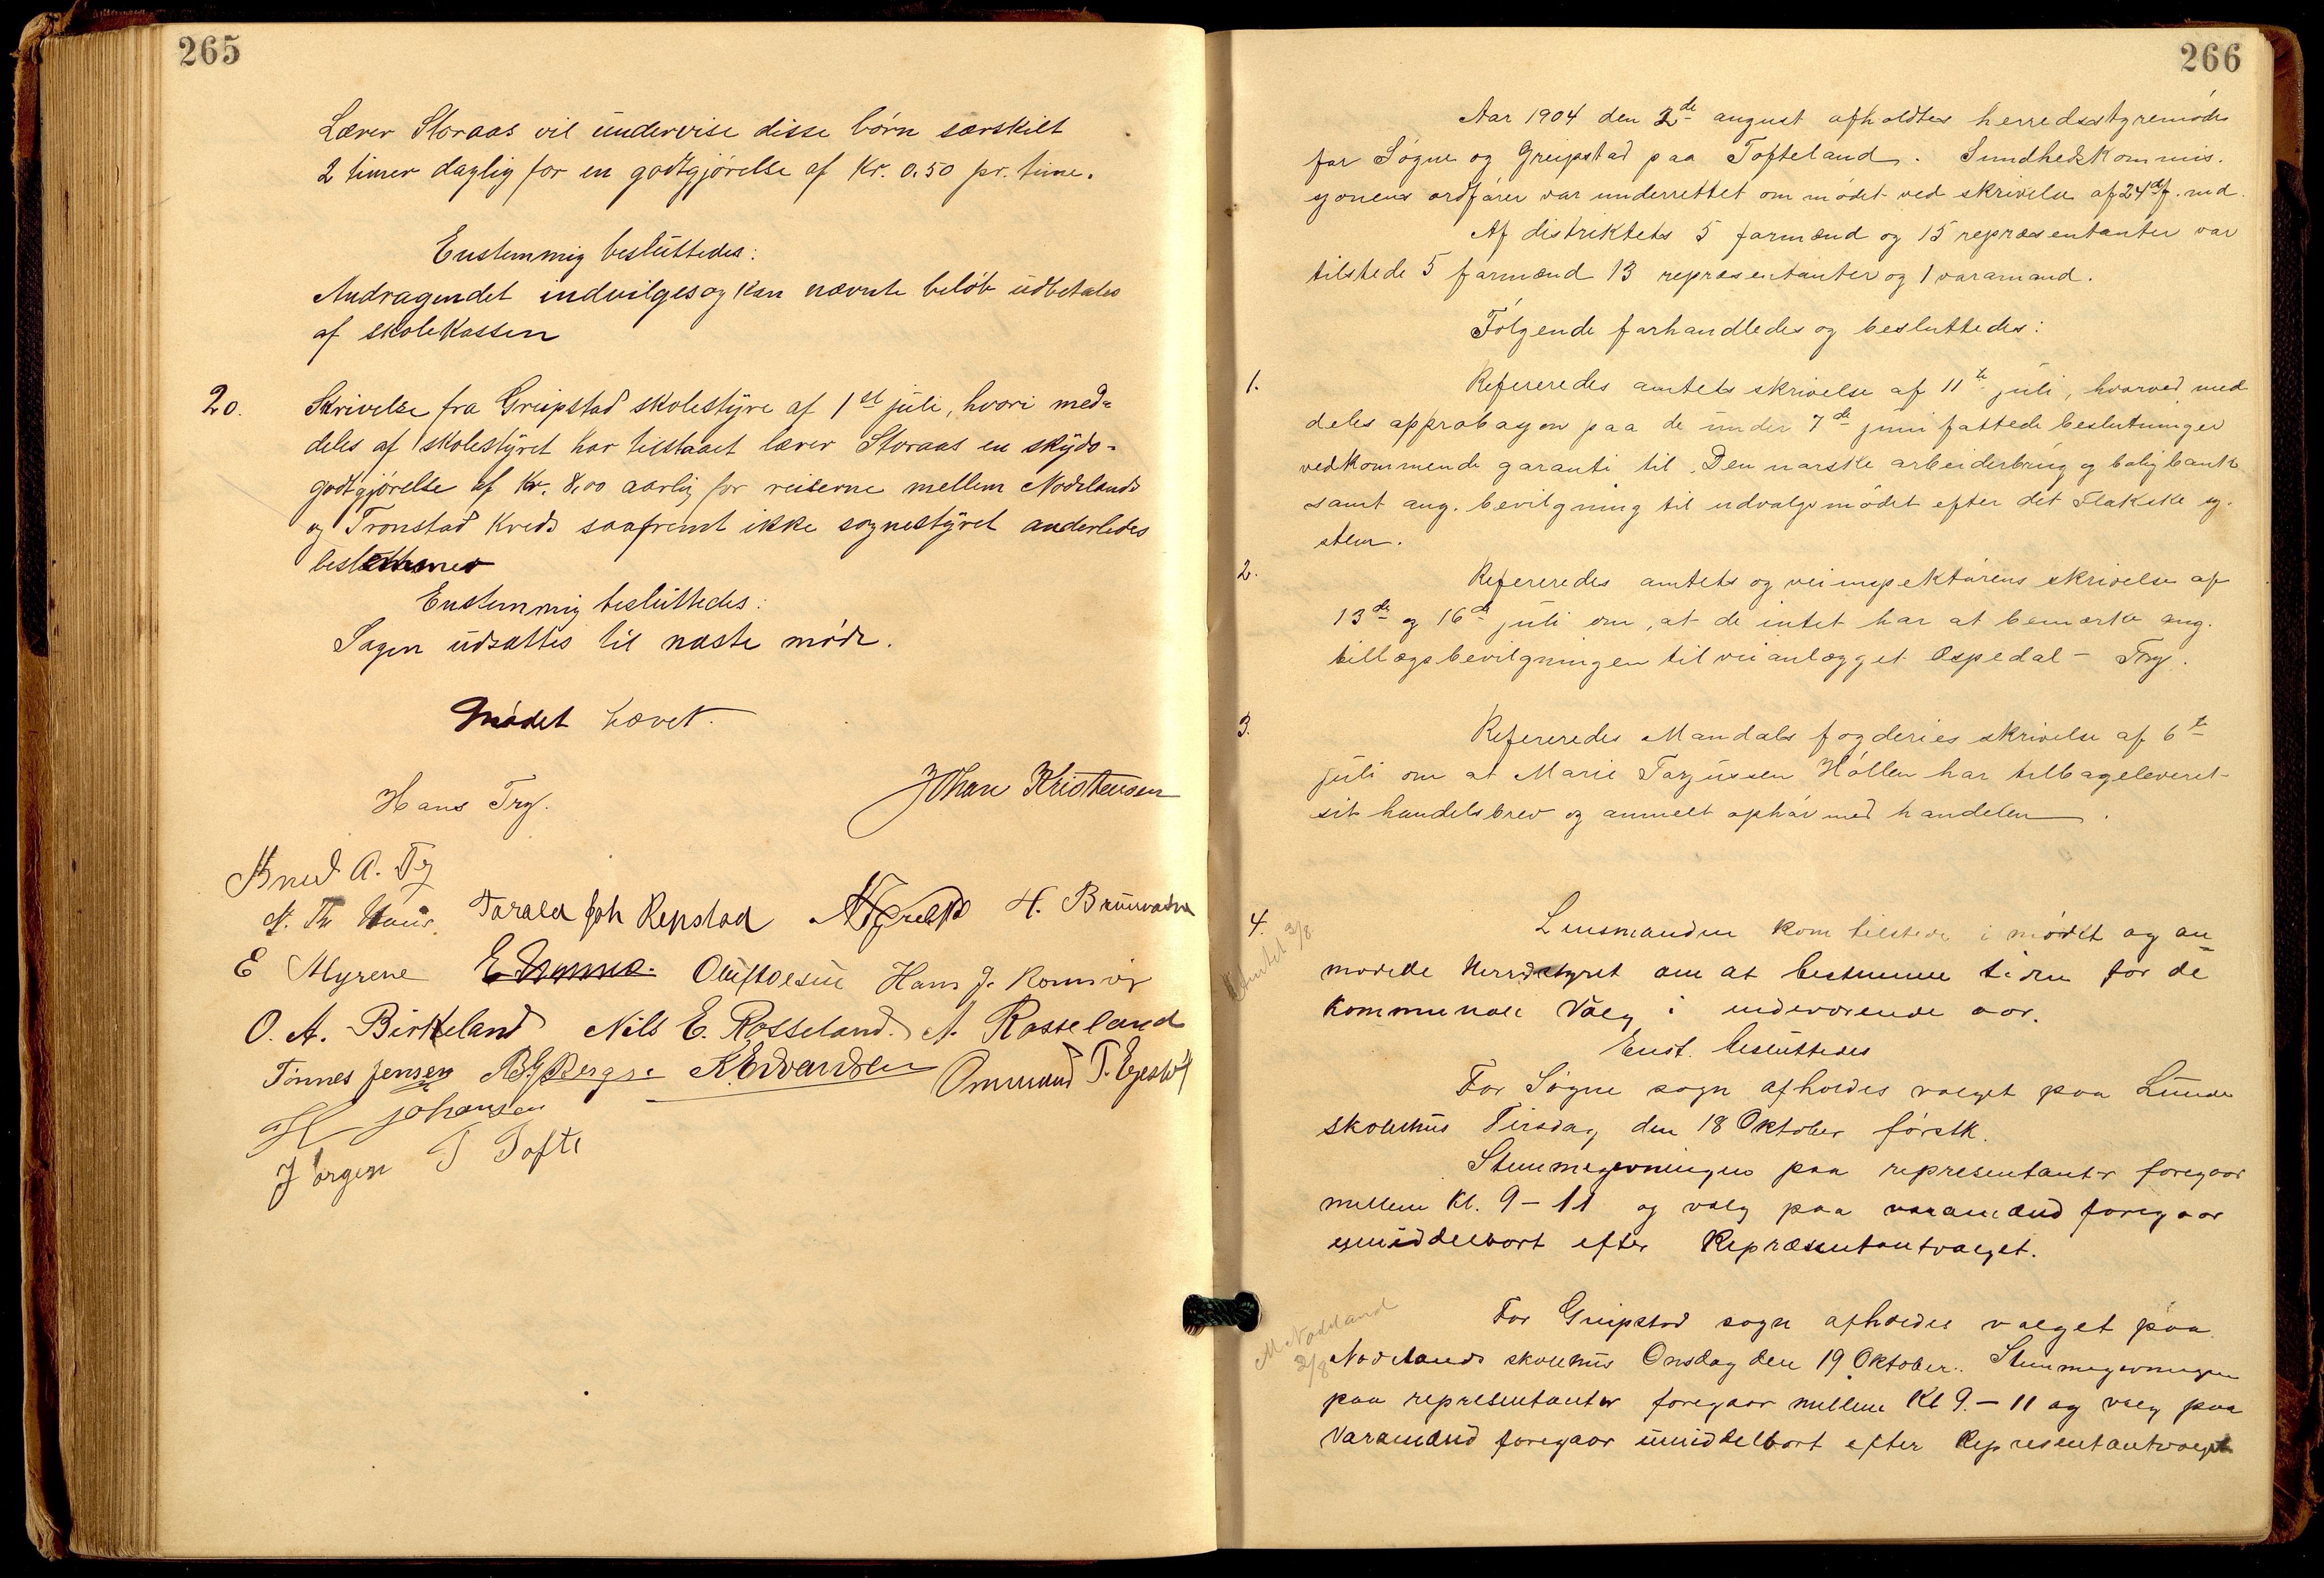 265
Lærer Storaas vil undervise disse børn særskilt
2 timer daglig for en godtgjørelse af Kr. 0.50 pr. time.
Enstemmig besluttedes:
Andragendet indvilges og kan nævnte beløb udbetales
af skolekassen
20.
Skrivelse fra Greipstad skolestyre af 1st juli, hvori med-
deles af skolestyret har tilstaaet lærer Storaas en skyds-
godtgjørelse af Kr. 8,00 aarlig for reiserne mellem Nodelands
og Tronstad Kreds saafremt ikke sognestyret anderledes
bestemmer
Enstemmig besluttedes:
Sagen udsættes til næste møde.
Mødet hævet.
Hans Try. Johan Kristensen
Knud A. Try
N. Th Tarald Joh Repstad H. Brunvatne
E Myrene Hans J. Romsvig
O. A. Birkeland Nils E. Rosseland. A. Rosseland
Tønnes Jensen K Edvardsen Ommund T.
H Johansen
Jørgen T Tofte
266
Aar 1904 den 2de august afholdtes herredsstyremøde
for Søgne og Greipstad paa Tofteland. Sundhedskommis-
syonens ordfører var underrettet om mødet ved skrivelse af 24de f. md.
Af distriktets 5 formænd og 15 repræsentanter var
tilstede 5 formænd 13 repræsentanter og 1 varamand.
Følgende forhandledes og besluttedes:
1.
Refereredes amtets skrivelse af 11te juli, hvorved med
deles approbasyon paa de under 7de juni fattede beslutninger
vedkommende garanti til Den norske arbeiderbrug og boligbank
samt ang. bevilgning til udvalgsmødet efter det Flakske sy-
stem.
2.
Refereredes amtets og veiinspektørens skrivelse af
13de og 16de juli om, at de intet har at bemærke ang.
tillægsbevilgningen til veianlægget Ospedal - Try.
3.
Refereredes Mandals fogderies skrivelse af 6te
juli om at Marie Tarjussen Høllen har tilbageleveret
sit handelsbrev og anmelt ophør med handelen.
4.
Amtet 3/8
Lensmanden kom tilstede i mødet og an
modede Herredsstyret om at bestemme tiden for de
kommunale Valg i indeværende aar.
Enst. besluttedes
For Søgne sogn afholdes valget paa Lunde
skolehus Tirsdag den 18 Oktober førstk.
Stemmegivningen paa representanter foregaar
mellem Kl. 9 - 11 og valg paa varamænd foregaar
umiddelbart efter Repræsentantvalget.
M Nodeland
3/8
For Greipstad sogn afholdes valget paa
Nodelands skolehus Onsdag den 19 Oktober. Stemmegivningen
paa representanter foregaar mellem Kl 9. - 11 og valg paa
Varamænd foregaar umiddelbart efter Representantvalget